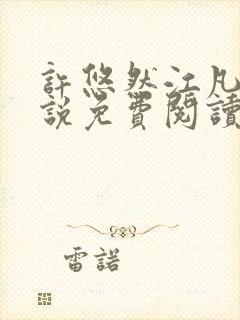 許悠然江凡
說免費閱讀
雷諾